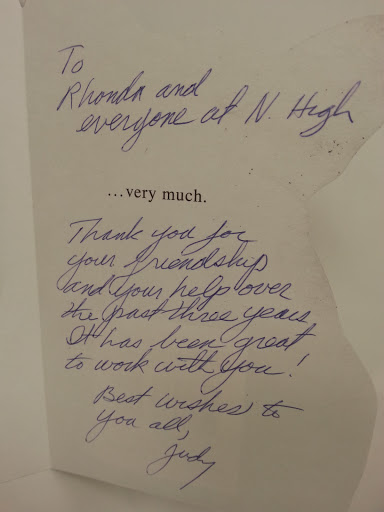 To
Rhonda and
everyone at N. High
...very much.
Thank you for
your friendship
and your help over
the past three years
It has been great
to work with you!
Best wishes to
you all,
Judy